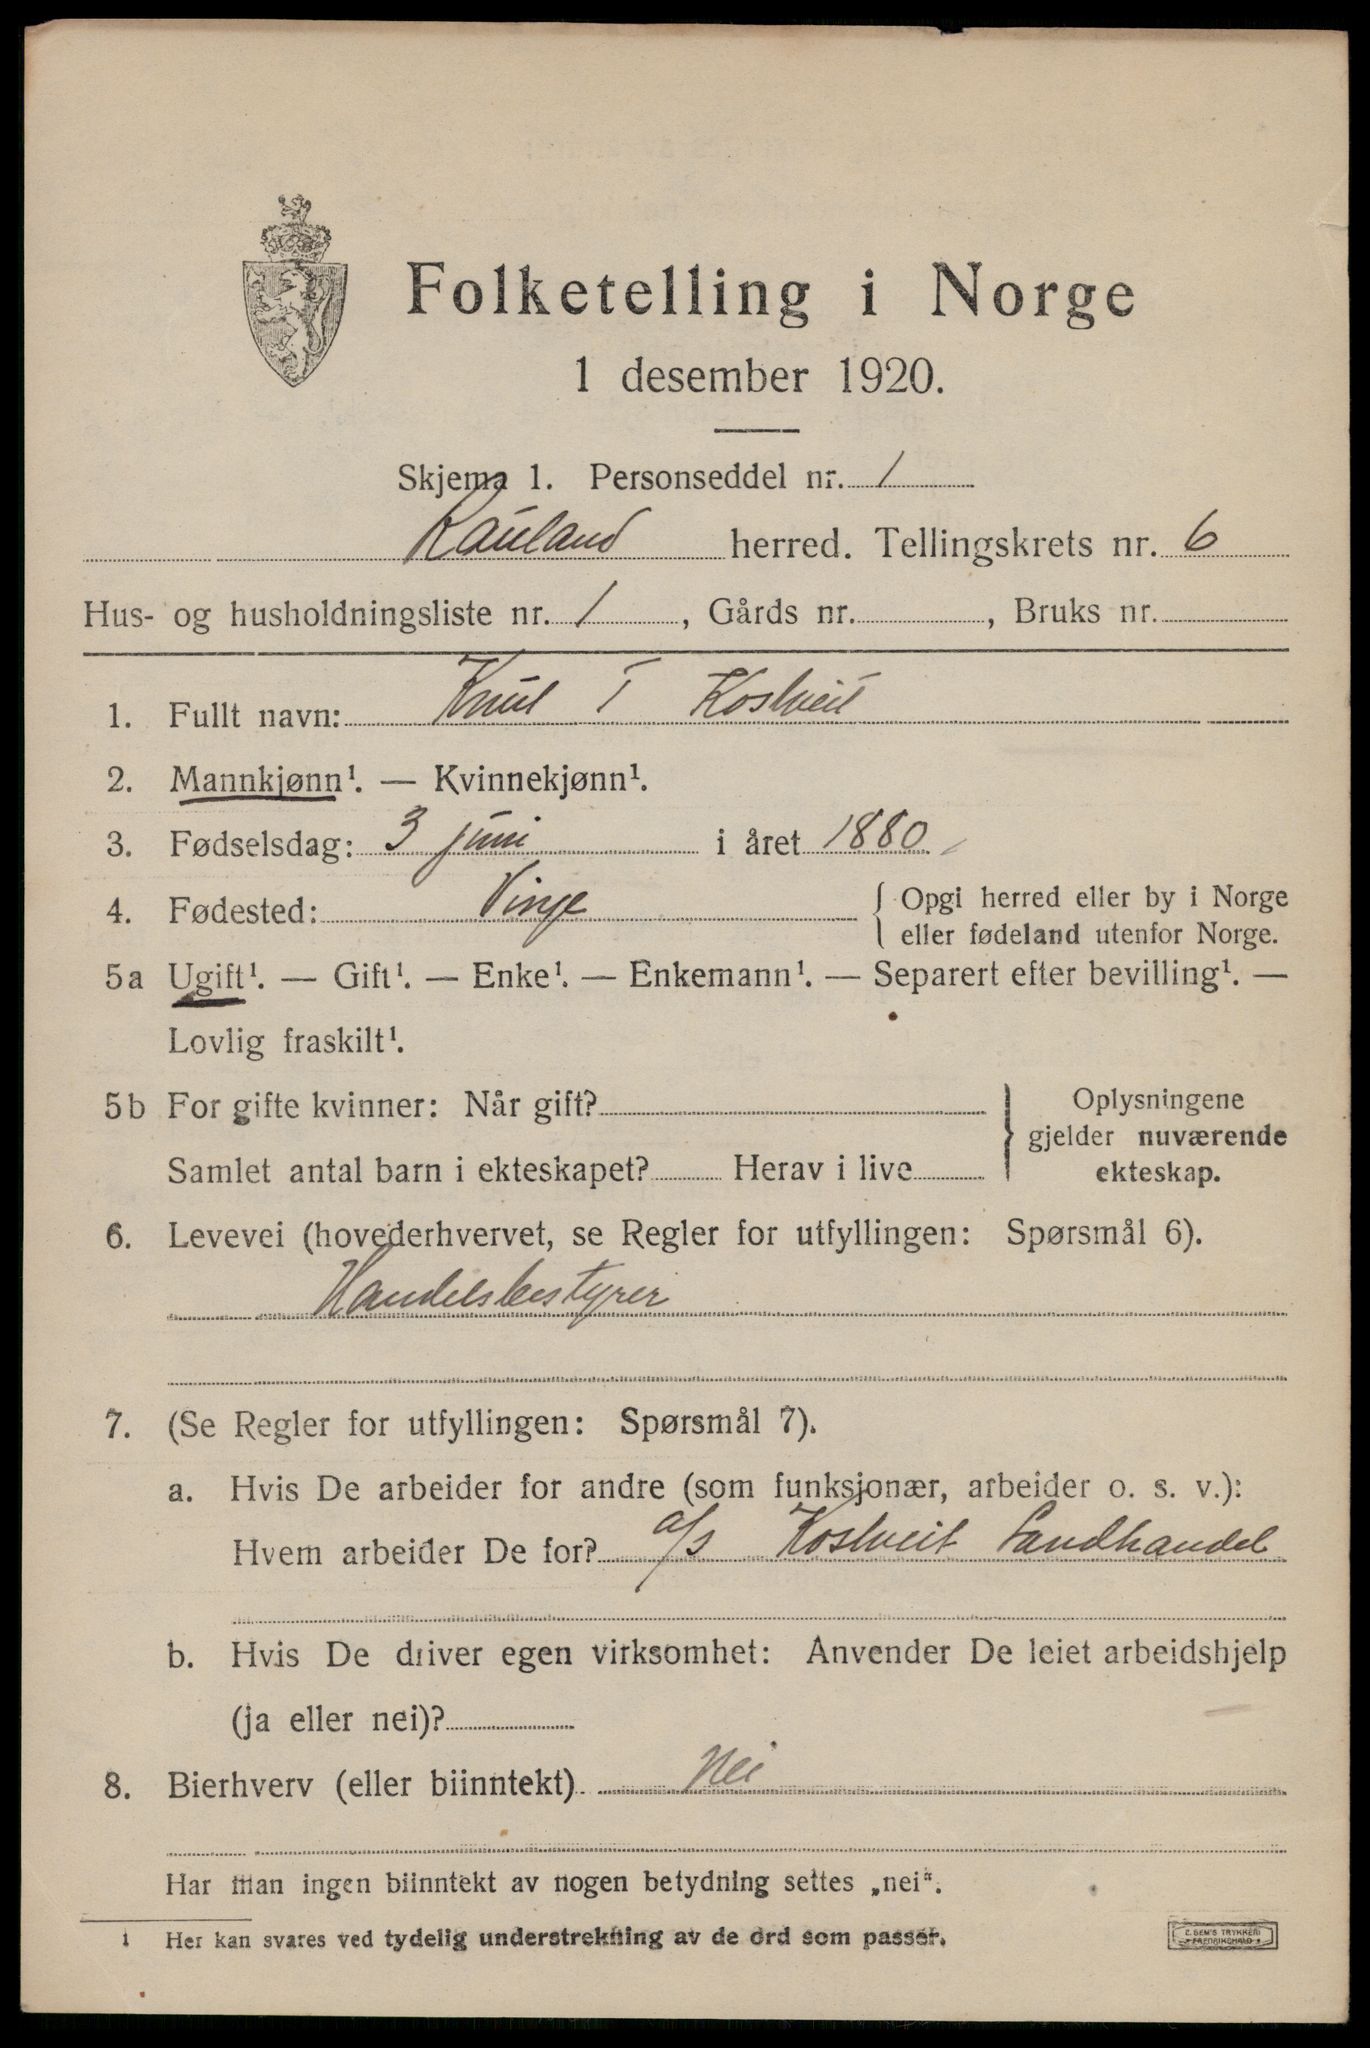 Folketelling i Norge
1 desember 1920.
Skjema 1. Personseddel nr. 1
Rauland herred. Tellingskrets nr. 6
Hus- og husholdningsliste nr. 1, Gårds nr. , Bruks nr.
1. Fullt navn: Knut T Kostveit
2. Mannkjønn¹. — Kvinnekjønn¹.
3. Fødselsdag: 3 juni i året 1880
4. Fødested: Vinje { Opgi herred eller by i Norge
eller fødeland utenfor Norge.
5a Ugift¹. — Gift¹. — Enke¹. — Enkemann¹. — Separert efter bevilling¹. —
Lovlig fraskilt¹.
5b For gifte kvinner: Når gift?
Samlet antal barn i ekteskapet? Herav i live
} Oplysningene
gjelder nuværende
ekteskap.
6. Levevei (hovederhvervet, se Regler for utfyllingen: Spørsmål 6).
Handelsbestyrer
7. (Se Regler for utfyllingen: Spørsmål 7).
a. Hvis De arbeider for andre (som funksjonær, arbeider o. s. v.):
Hvem arbeider De for? a/s Kostveit Landhandel
b. Hvis De driver egen virksomhet: Anvender De leiet arbeidshjelp
(ja eller nei)?
8. Bierhverv (eller biinntekt) Nei
Har man ingen biinntekt av nogen betydning settes „nei“.
1 Her kan svares ved tydelig understrekning av de ord som passer.
E. SEM'S TRYKKERI
FREDRIKSHALD